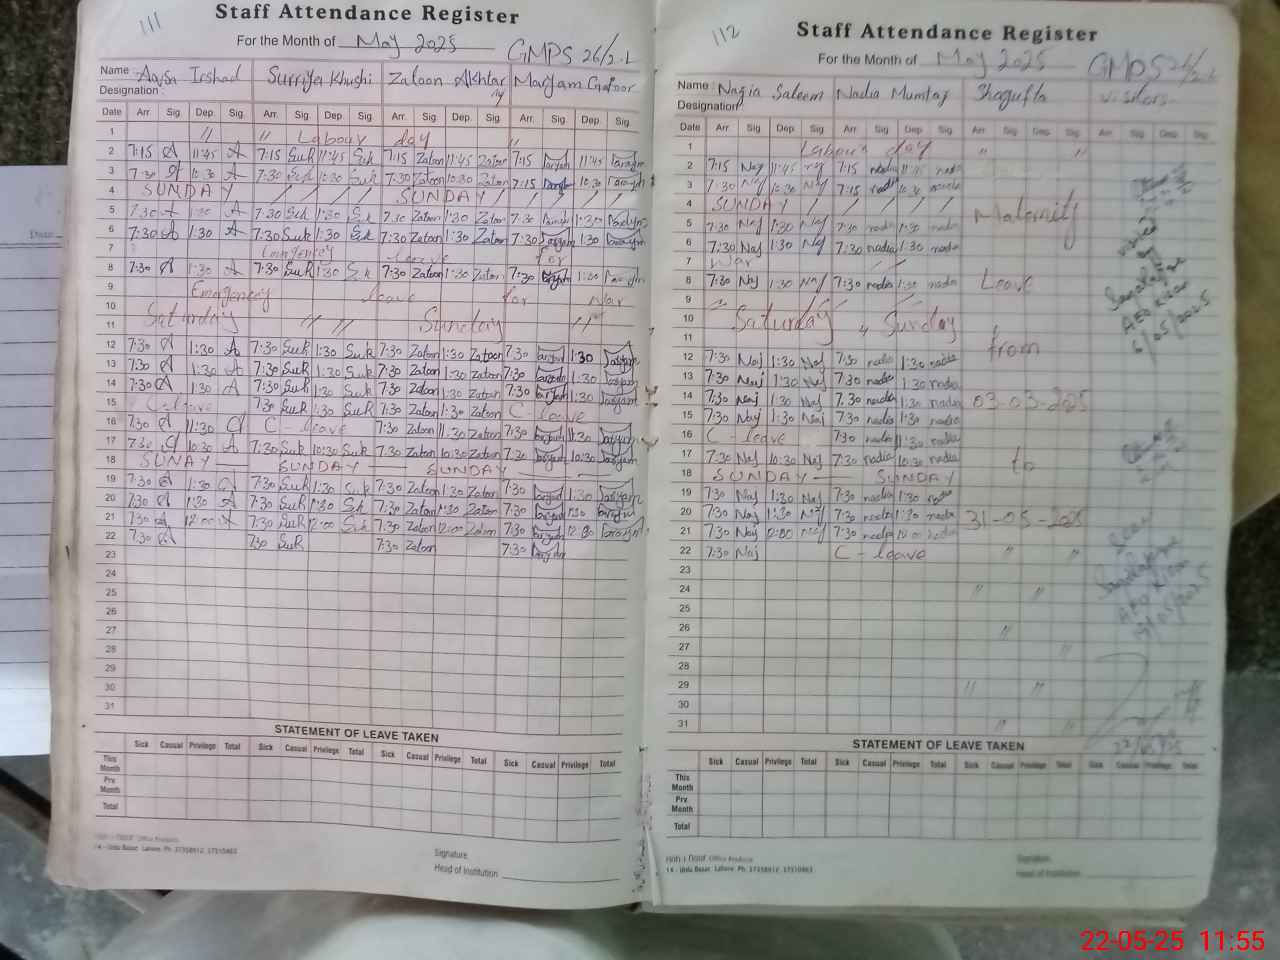 111
Staff Attendance Register
For the Month of May 2025 GMPS 26/2-L
Name : Aqsa Irshad Surriya Khushi Zatoon Akhtar Maryam Gafoor
Designation :
Date Arr. Sig. Dep. Sig. Arr. Sig. Dep. Sig. Arr. Sig. Dep. Sig. Arr. Sig. Dep. Sig.
1 // // Labour day //
2 7:15 A 11:45 A 7:15 Suk 11:45 Suk 7:15 Zatoon 11:45 Zatoon 7:15 11:45
3 7:30 A 10:30 A 7:30 Suk 10:30 Suk 7:30 Zatoon 10:30 Zatoon 7:15 10:30
4 SUNDAY / / / / / SUNDAY / / / /
5 7:30 A 1:30 A 7:30 Suk 1:30 Suk 7:30 Zatoon 1:30 Zatoon 7:30 1:30
6 7:30 A 1:30 A 7:30 Suk 1:30 Suk 7:30 Zatoon 1:30 Zatoon 7:30 1:30
7 leave for
8 7:30 A 1:30 A 7:30 Suk 1:30 Suk 7:30 Zatoon 1:30 Zatoon 7:30 1:30
9 Emergency leave for war
10 Saturday // // Sunday //
11
12 7:30 A 1:30 A 7:30 Suk 1:30 Suk 7:30 Zatoon 1:30 Zatoon 7:30 1:30
13 7:30 A 1:30 A 7:30 Suk 1:30 Suk 7:30 Zatoon 1:30 Zatoon 7:30 1:30
14 7:30 A 1:30 A 7:30 Suk 1:30 Suk 7:30 Zatoon 1:30 Zatoon 7:30 1:30
15 C-leave 7:30 Suk 1:30 Suk 7:30 Zatoon 1:30 Zatoon C-leave
16 7:30 A 11:30 A C-leave 7:30 Zatoon 11:30 Zatoon 7:30 11:30
17 7:30 A 10:30 A 7:30 Suk 10:30 Suk 7:30 Zatoon 10:30 Zatoon 7:30 10:30
18 SUNAY — SUNDAY — SUNDAY —
19 7:30 A 1:30 A 7:30 Suk 1:30 Suk 7:30 Zatoon 1:30 Zatoon 7:30 1:30
20 7:30 A 1:30 A 7:30 Suk 1:30 Suk 7:30 Zatoon 1:30 Zatoon 7:30 1:30
21 7:30 A 12:00 A 7:30 Suk 12:00 Suk 7:30 Zatoon 12:00 Zatoon 7:30 12:00
22 7:30 A 7:30 Suk 7:30 Zatoon 7:30
23
24
25
26
27
28
29
30
31
STATEMENT OF LEAVE TAKEN
Sick Casual Privilege Total Sick Casual Privilege Total Sick Casual Privilege Total Sick Casual Privilege Total
This Month
Prv. Month
Total
14 - Urdu Bazar, Lahore.
Signature
Head of Institution
112
Staff Attendance Register
For the Month of May 2025 GMPS 26/2-L
Name : Nazia Saleem Nadia Mumtaz Shagufta visitors
Designation:
Date Arr. Sig. Dep. Sig. Arr. Sig. Dep. Sig. Arr. Sig. Dep. Sig. Arr. Sig. Dep. Sig.
1 Labour day // //
2 7:15 Naj 11:45 Naj 7:15 nadia 11:45 nadia
3 7:30 Naj 10:30 Naj 7:15 nadia 10:30 nadia
4 SUNDAY / / / / / / Maternity
5 7:30 Naj 1:30 Naj 7:30 nadia 1:30 nadia
6 7:30 Naj 1:30 Naj 7:30 nadia 1:30 nadia visited
7 war by
8 7:30 Naj 1:30 Naj 7:30 nadia 1:30 nadia Leave
9 AEO
10 Saturday // Sunday 6/05/2025
11 from
12 7:30 Naj 1:30 Naj 7:30 nadia 1:30 nadia
13 7:30 Naj 1:30 Naj 7:30 nadia 1:30 nadia
14 7:30 Naj 1:30 Naj 7:30 nadia 1:30 nadia 03-03-2025
15 7:30 Naj 1:30 Naj 7:30 nadia 1:30 nadia
16 C-leave 7:30 nadia 11:30 nadia
17 7:30 Naj 10:30 Naj 7:30 nadia 10:30 nadia to
18 SUNDAY — SUNDAY
19 7:30 Naj 1:30 Naj 7:30 nadia 1:30 nadia
20 7:30 Naj 1:30 Naj 7:30 nadia 1:30 nadia 31-05-2025
21 7:30 Naj 12:00 Naj 7:30 nadia 12:00 nadia
22 7:30 Naj C-leave // //
23
24 // //
25 AEO
26 //
27 //
28
29 // //
30
31 // //
22/05/25
STATEMENT OF LEAVE TAKEN
Sick Casual Privilege Total Sick Casual Privilege Total Sick Casual Privilege Total Sick Casual Privilege Total
This Month
Prv. Month
Total
14 - Urdu Bazar, Lahore. Ph: 37358912, 37310463
Signature
Head of Institution
22-05-25 11:55